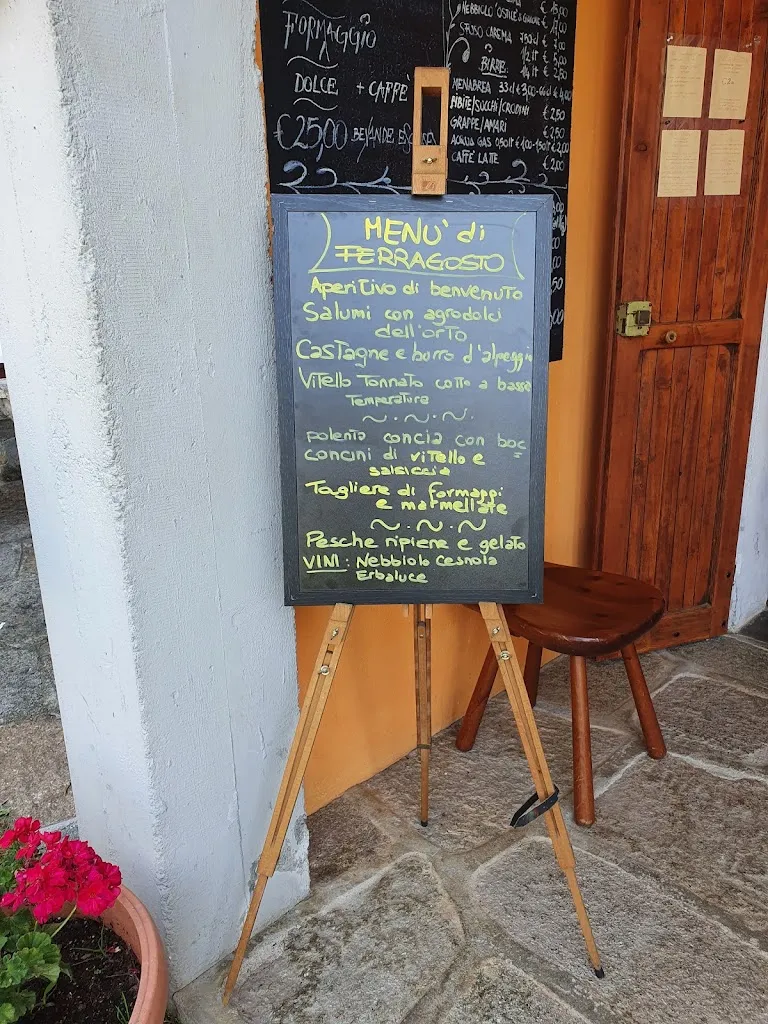 FORMAGGIO
DOLCE + CAFFÈ
€25,00 BEVANDE
NEBBIOLO
SFUSO CAREMA 75cl €
1/2 lt € 5,00
1/4 lt € 2,50
BIRRE
MENABREA 33cl €3,00-66cl € 4,00
BIBITE/SUCCHI/CRODINI € 2,50
GRAPPE/AMARI € 2,50
ACQUA GAS 0,50lt €1,00-1,50lt € 2,00
CAFFÈ LATTE € 2,00
MENU' di
FERRAGOSTO
Aperitivo di benvenuto
Salumi con agrodolci
dell'orto
Castagne e burro d'alpeggio
Vitello Tonnato cotto a bassa
Temperatura
polenta concia con boc
concini di vitello e
salsiccia
Tagliere di formaggi
e marmellate
Pesche ripiene e gelato
VINI : Nebbiolo Cesnola
Erbaluce